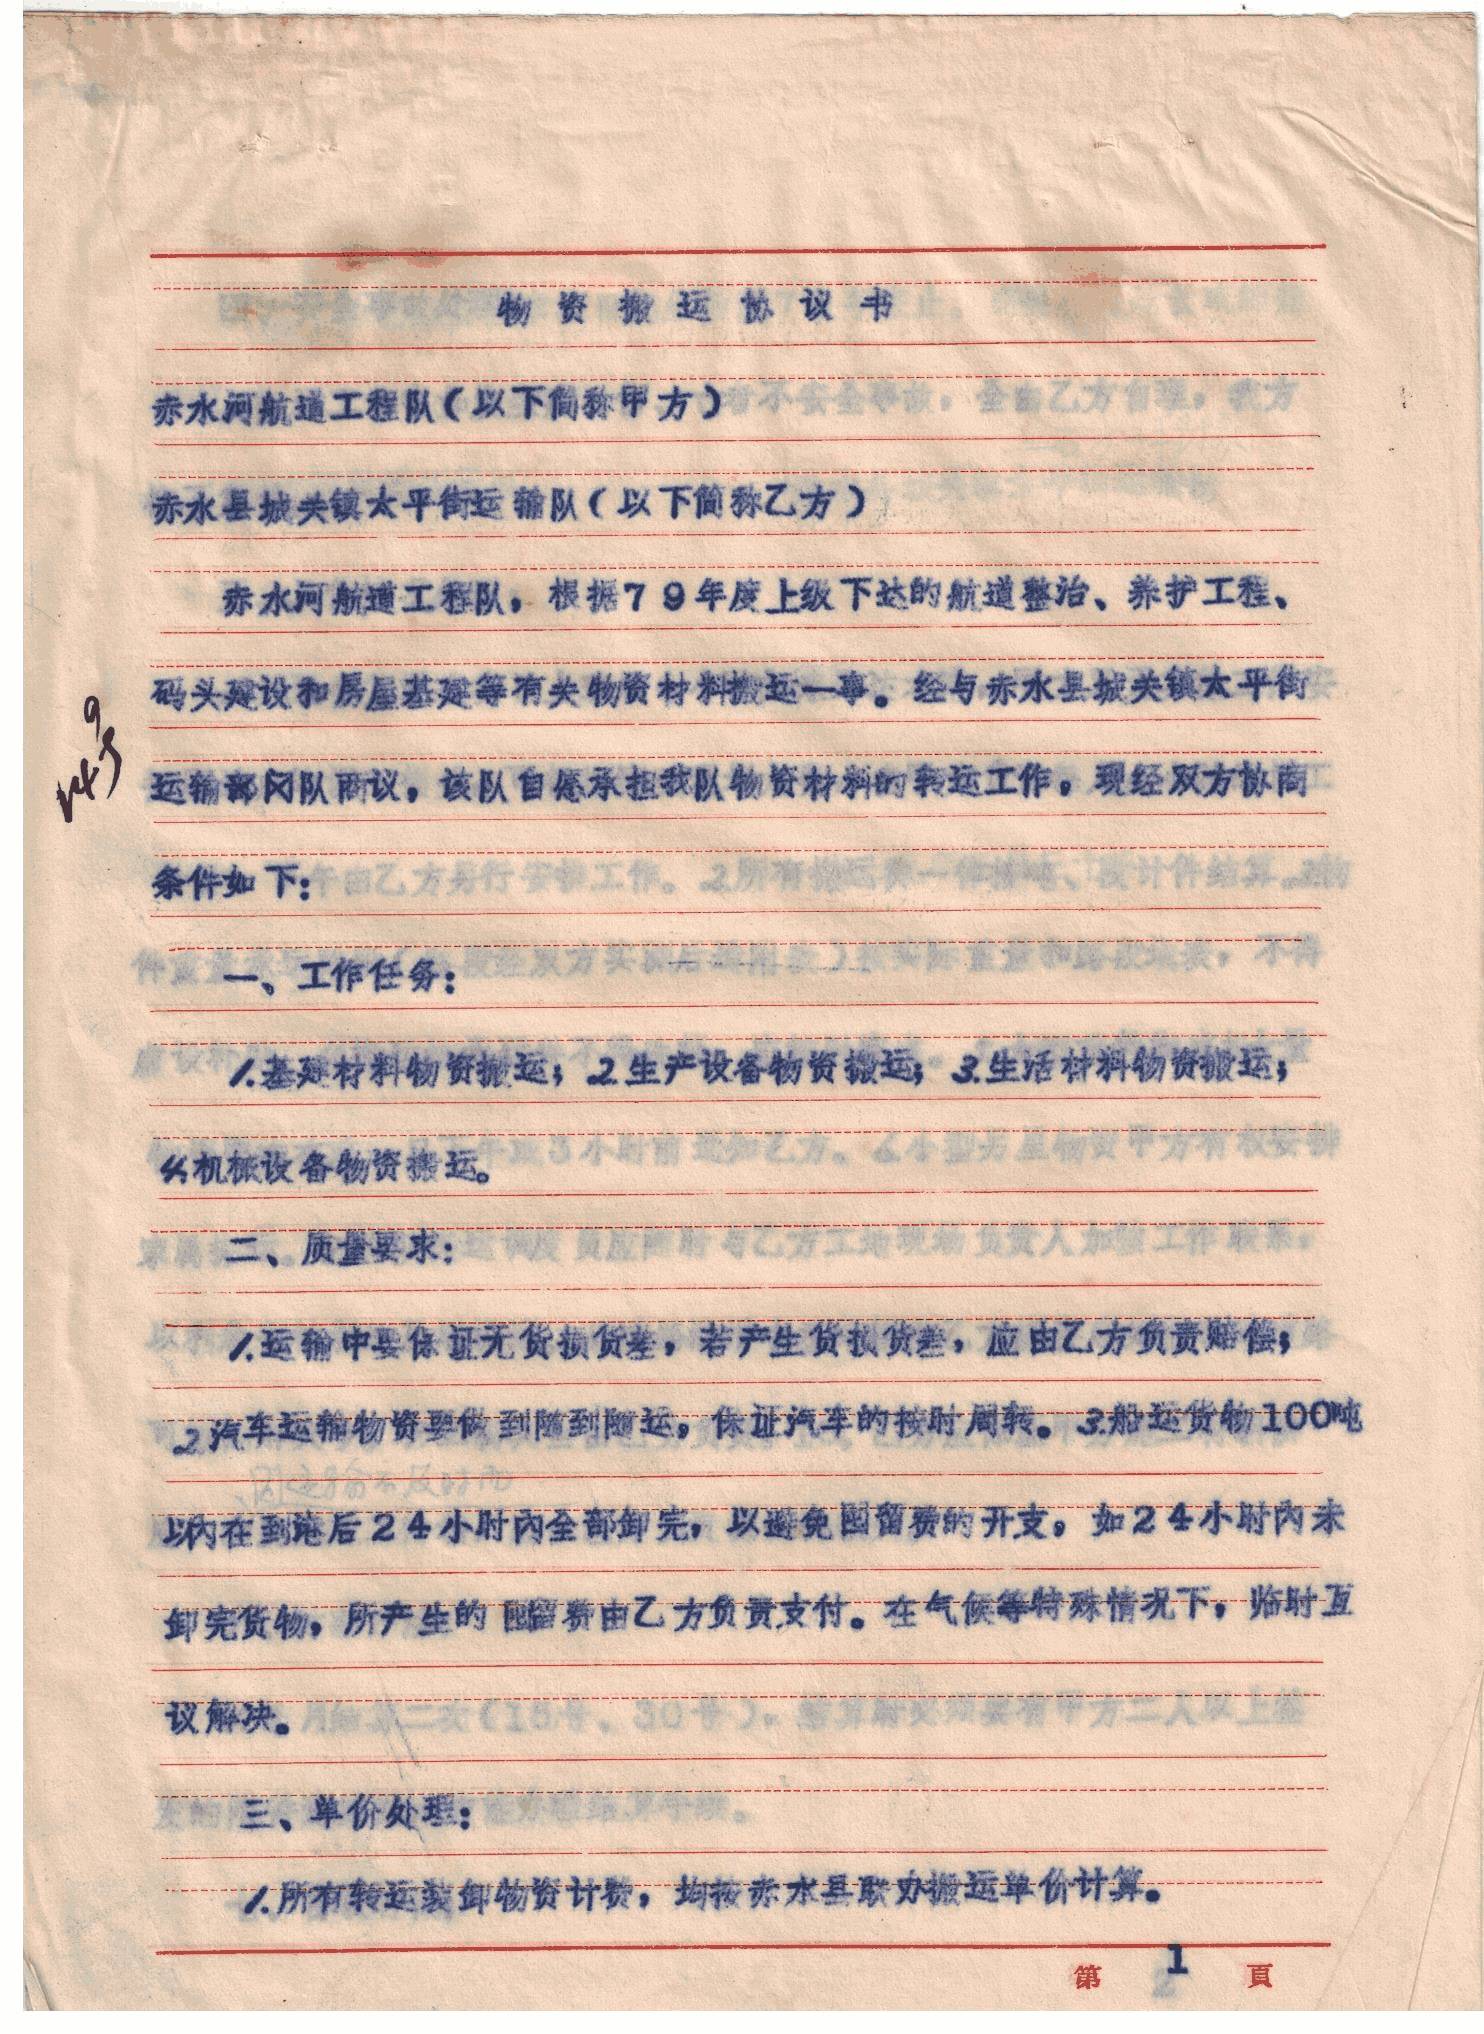 物资搬运协议书
赤水河航道工程队(以下简称甲方)
赤水县城关镇太平街运输队(以下简称乙方)
赤水河航道工程队,根据79年度上级下达的航道整治、养护工程、
码头建设和房屋基建等有关物资材料搬运一事。经与赤水县城关镇太平街
运输部冈队商议,该队自愿承担我队物资材料的转运工作,现经双方协商
条件如下:
一、工作任务:
1.基建材料物资搬运;2.生产设备物资搬运;3.生活材料物资搬运;
4.机械设备物资搬运。
二、质量要求:
1.运输中要保证无货损货差,若产生货损货差,应由乙方负责赔偿;
2.汽车运输物资要做到随到随运,保证汽车的按时周转。3.船运货物100吨
因运输不及时而
以内在到港后24小时内全部卸完,以避免囤留费的开支,如24小时内未
卸完货物,所产生的囤留费由乙方负责支付。在气候等特殊情况下,临时互
议解决。
三、单价处理:
1.所有转运装卸物资计费,均按赤水县联办搬运单价计算。
第 1 頁